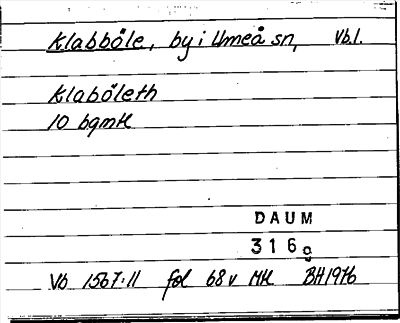 Klabböle, by i Umeå sn, Vb.l.
Klaböleth
10 bqmtl
DAUM
316g
Vb 1567:11 fol 68v Mtl BH1976